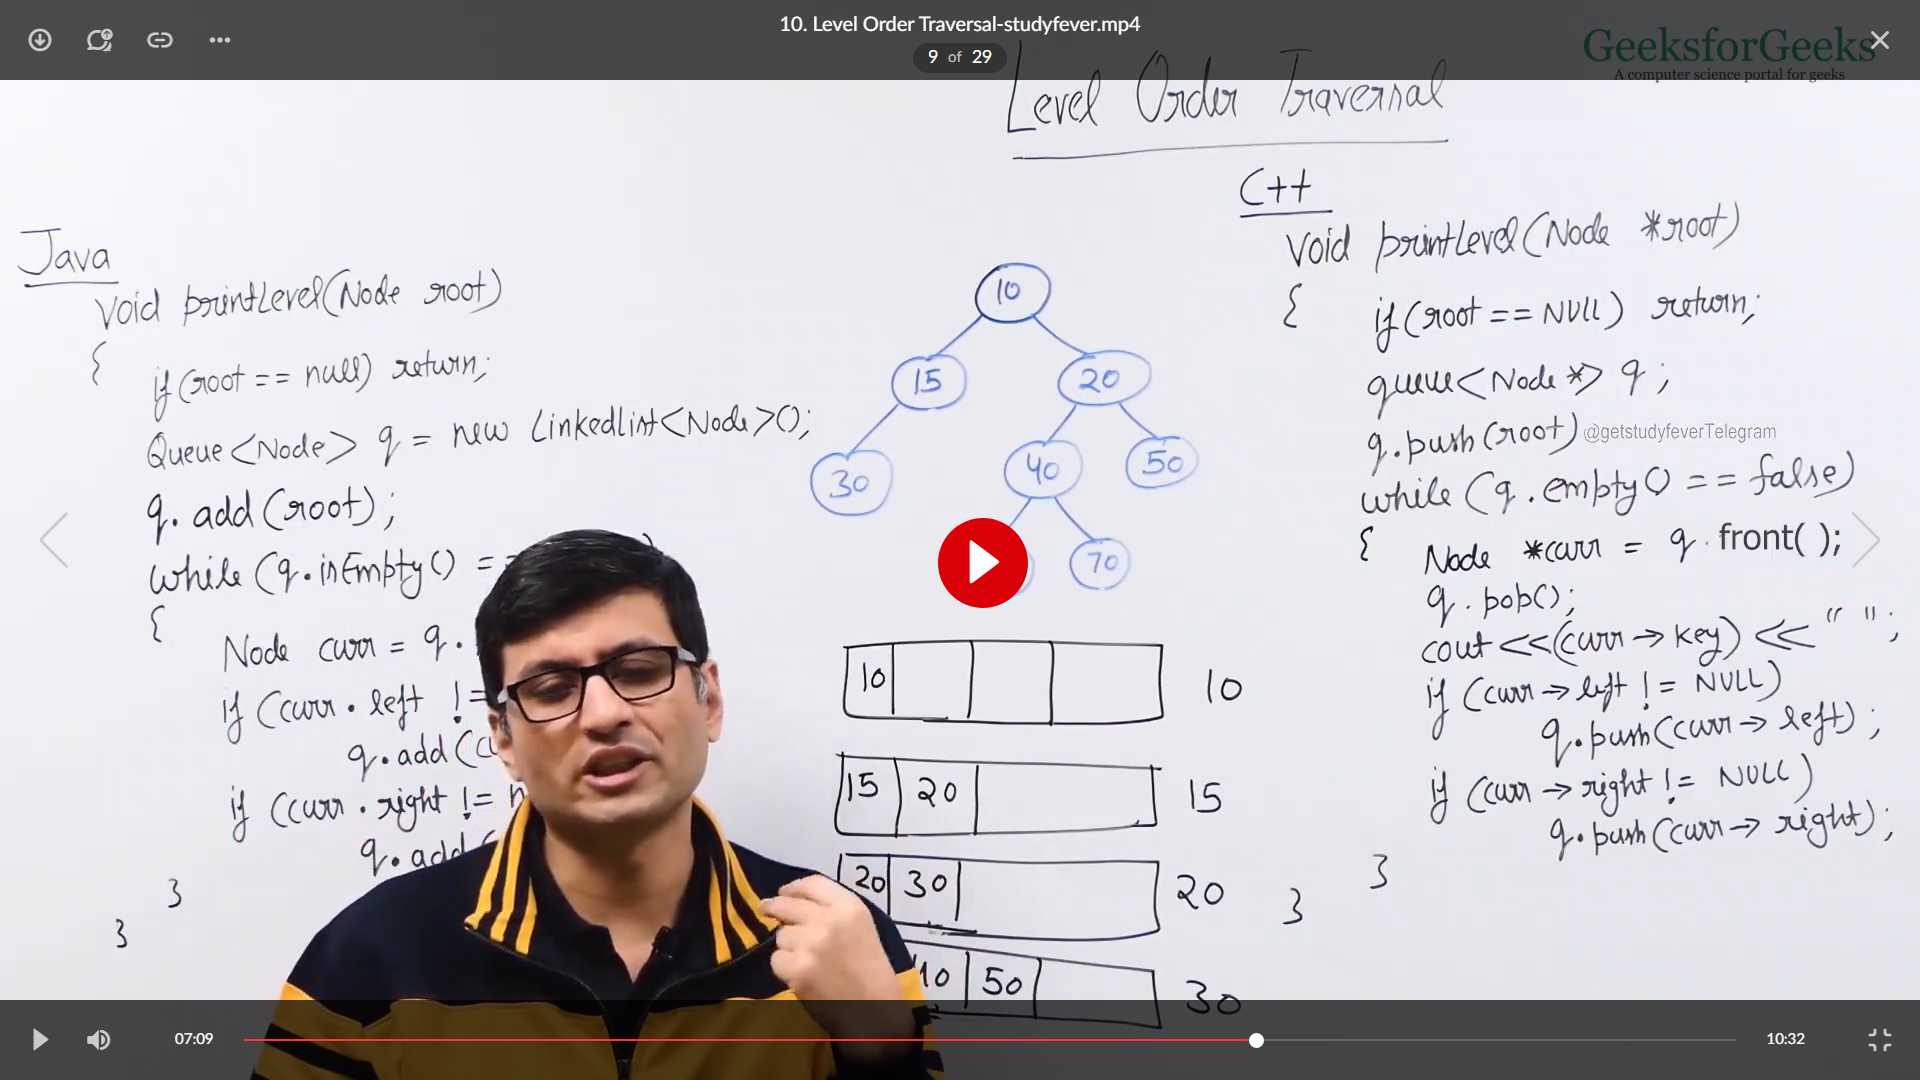 10. Level Order Traversal-studyfever.mp4
9 of 29
GeeksforGeeks
A computer science portal for geeks
Level Order Traversal
Java
void printLevel(Node root)
{
if (root == null) return;
Queue<Node> q = new LinkedList<Node>();
q. add (root);
while (q.isEmpty() =
{
Node curr = q.
if (curr. left !=
q.add(
if (curr. right !=
q.add
}
}
10
15
20
30
40
50
70
10
10
15 20
15
20 30
20
50
30
C++
void printLevel(Node *root)
{
if (root == NULL) return;
queue<Node *> q;
q.push(root)
@getstudyfeverTelegram
while (q.empty() == false)
{
Node *curr = q. front( );
q.pop();
cout <<(curr→key) << " ";
if (curr→left != NULL)
q.push(curr→left);
if (curr→right != NULL)
q.push(curr→right);
}
}
07:09
10:32